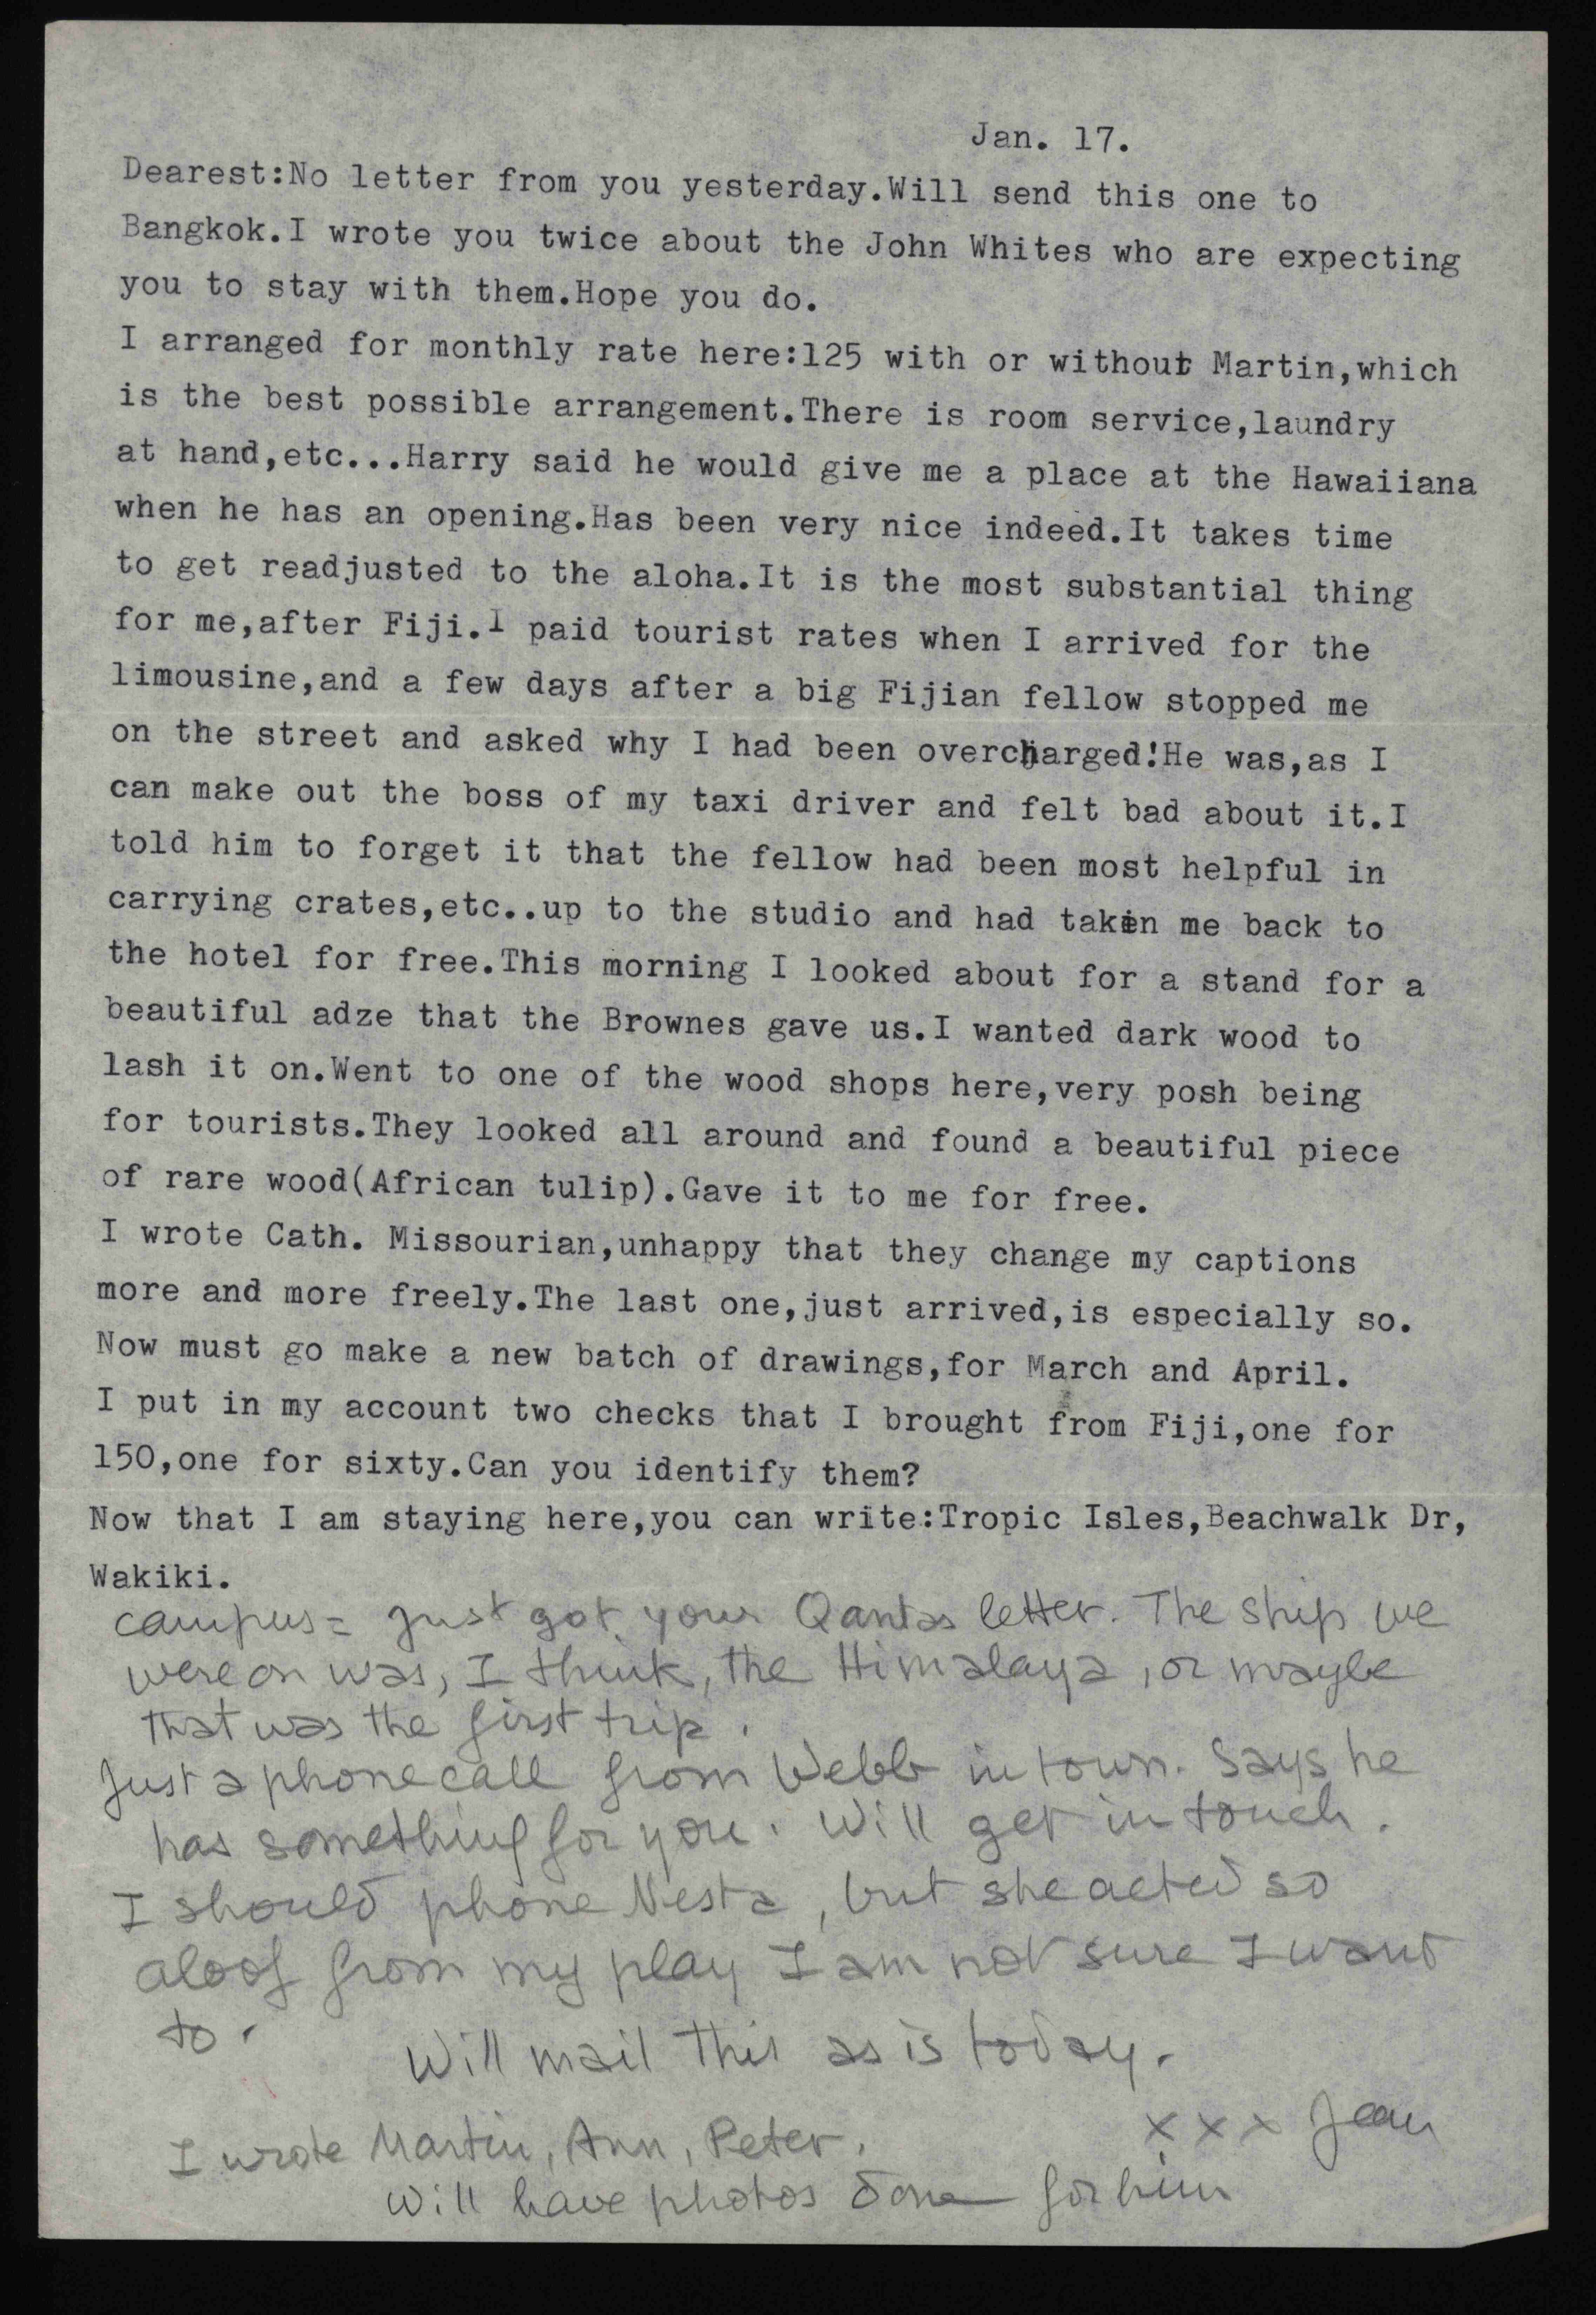 Jan. 17.
Dearest:No letter from you yesterday.Will send this one to
Bangkok.I wrote you twice about the John Whites who are expecting
you to stay with them.Hope you do.
I arranged for monthly rate here:125 with or without Martin,which
is the best possible arrangement.There is room service,laundry
at hand,etc...Harry said he would give me a place at the Hawaiiana
when he has an opening.Has been very nice indeed.It takes time
to get readjusted to the aloha.It is the most substantial thing
for me,after Fiji.I paid tourist rates when I arrived for the
limousine,and a few days after a big Fijian fellow stopped me
on the street and asked why I had been overcharged!He was,as I
can make out the boss of my taxi driver and felt bad about it.I
told him to forget it that the fellow had been most helpful in
carrying crates,etc..up to the studio and had taken me back to
the hotel for free.This morning I looked about for a stand for a
beautiful adze that the Brownes gave us.I wanted dark wood to
lash it on.Went to one of the wood shops here,very posh being
for tourists.They looked all around and found a beautiful piece
of rare wood(African tulip).Gave it to me for free.
I wrote Cath. Missourian,unhappy that they change my captions
more and more freely.The last one,just arrived,is especially so.
Now must go make a new batch of drawings,for March and April.
I put in my account two checks that I brought from Fiji,one for
150,one for sixty.Can you identify them?
Now that I am staying here,you can write:Tropic Isles,Beachwalk Dr,
Wakiki.
campus= Just got your Qantas letter. The ship we
were on was, I think, the Himalaya, or maybe
that was the first trip.
Just a phone call from Webb in town. Says he
has something for you. Will get in touch.
I should phone Nesta, but she acted so
aloof from my play I am not sure I want
to.
Will mail this as is today.
xxx Jean
I wrote Martin, Ann, Peter.
Will have photos done for him